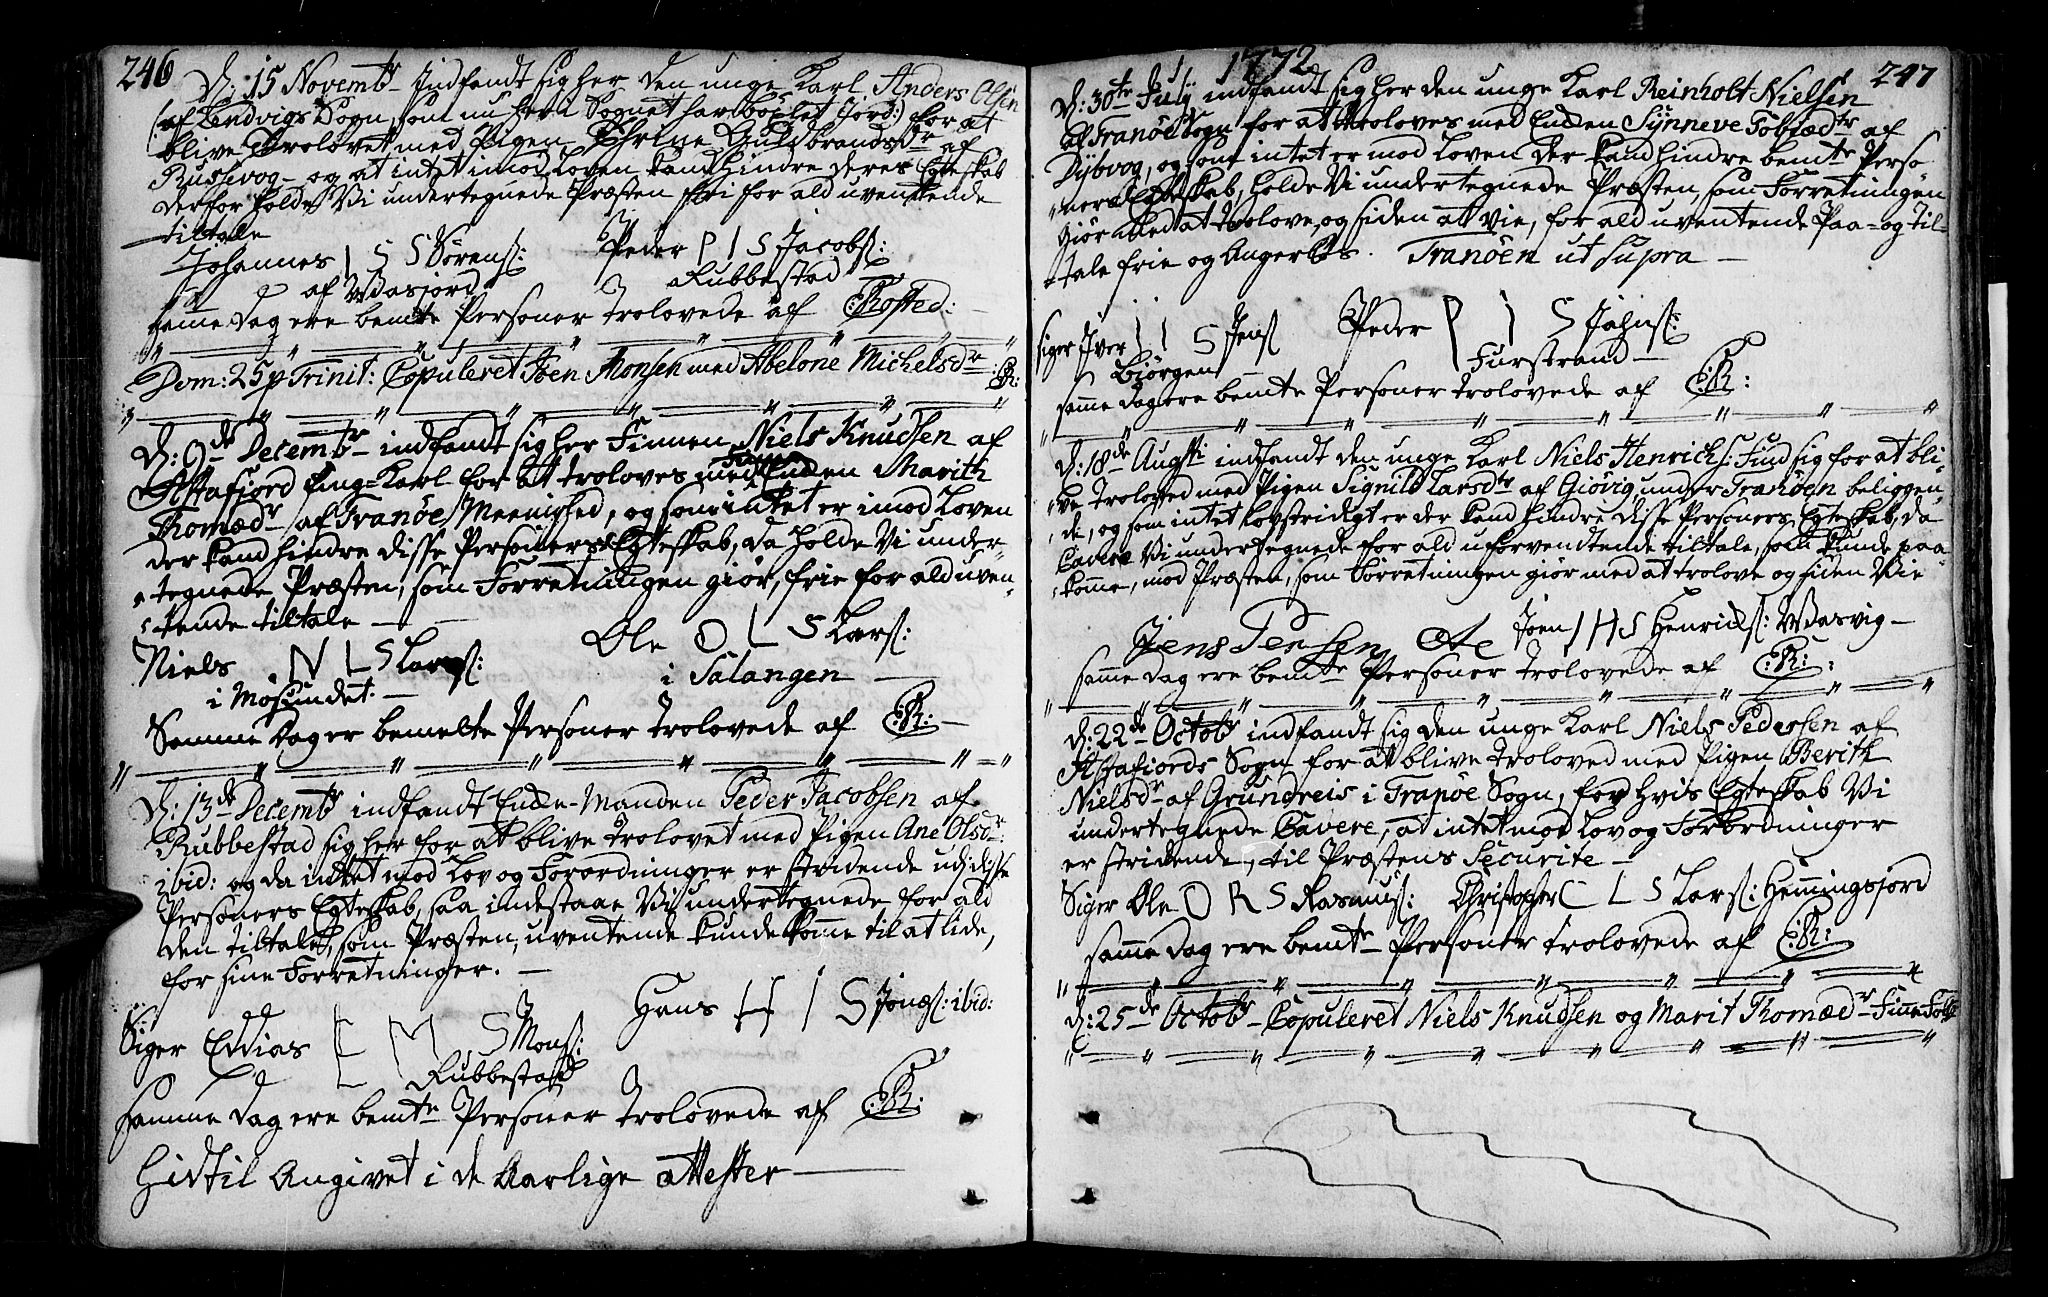 246
D: 15 Novembr Indfandt sig her den unge Karl Anders Olsen
(af Lendvigs Sogn, som nu her i Sognet har böxlet Jord:) for at
blive Trolovet med Pigen Thrine Guldbrandsdr af
Russevog – og at intet imod Loven kand hindre deres Egteskab
derfor holde Vi undertegnede Præsten fri for ald uventende
tiltale
Johannes I S S Sörens: Peder P I S Jacobs:
af Wasjord Rubbestad
samme dag ere bemte Personer trolovede af
Dom: 25 p Trinit: Copuleret Joen Monsen med Abelone Michelsdr :R:
D: 9de Decembr indfandt sig her Finnen Niels Knudsen af
Astafjord ung-Karl for at troloves med Enken Marith
Thomædr af Tranöe Meenighed, og som intet er imod Loven
der kand hindre disse Personers Egteskab, da holde Vi under-
tegnede Præsten, som Forretningen giör, frie for ald uven-
tende tiltale –
Niels N L S Lars: Ole O L S Lars:
i Mosundet. – i Salangen
Samme dag er bemelte Personer trolovede af :R: –
D: 13de Decembr indfandt Enke-Manden Peder Jacobsen af
Rubbestad sig her for at blive trolovet med Pigen Ane Olsdr:
ibid: og da intet mod Lov og Forordninger er stridende ud i disse
Personers Egteskab, saa indestaae Vi undertegnede for ald
den tiltale, som Præsten, uventende kunde komme til at lide,
for sine Forretninger. –
Siger Eddias E M S Mons: Hans H I S Jons: ibid:
Rubbestad
samme dag ere bemte Personer trolovede af :R:
Hidtil Angivet i de Aarlige attester
1772
247
D: 30te July indfandt sig her den unge Karl Reinholt Nielsen
af Tranöe Sogn for at troloves med Enken Synneve Tobiædr af
Dybvog, og som intet er mod Loven der kand hindre bemte Perso
ners Egteskab, holde Vi undertegnede Præsten, som Forretningen
giör med at trolove, og siden at vie, for ald uventende Paa- og til-
tale frie og Angerlös. Tranöen ut supra –
siger Iver I I S Jens: Peder P I S Jahns:
Biörgen Furstrand –
samme dag ere bemte Personer trolovede af :R:
D: 18de Augsti indfandt den unge Karl Niels Henrichs: Fin sig for at bli-
ve Troloved med Pigen Signild Larsdr af Giövig under Tranöen beliggen-
de, og som intet Lovstridigt er der kand hindre disse Personers Egteskab, da
Cavere Vi undertegnede for ald uforvendtende tiltale, som kunde paa-
komme, mod Præsten, som Forretningen giör med at trolove og siden Vie
Jens Jensen Joen I H S Henricks: Wasvig –
samme dag ere bemte Personer trolovede af :R:
D: 22de Octobr indfandt sig den unge Karl Niels Pedersen af
Astafiords Sogn for at blive troloved med Pigen Berith
Nielsdr af Grundreis i Tranöe Sogn, for hvis Egteskab Vi
undertegnede Cavere, at intet mod Lov og Forordninger
er stridende, til Præstens Securite –
Siger Ole O R S Rasmus: Christopher C L S Lars: Hemmingsjord
samme dag ere bemte Personer trolovede af :R:
D: 25de Octobr Copuleret Niels Knudsen og Marit Thomædr Finne Folk